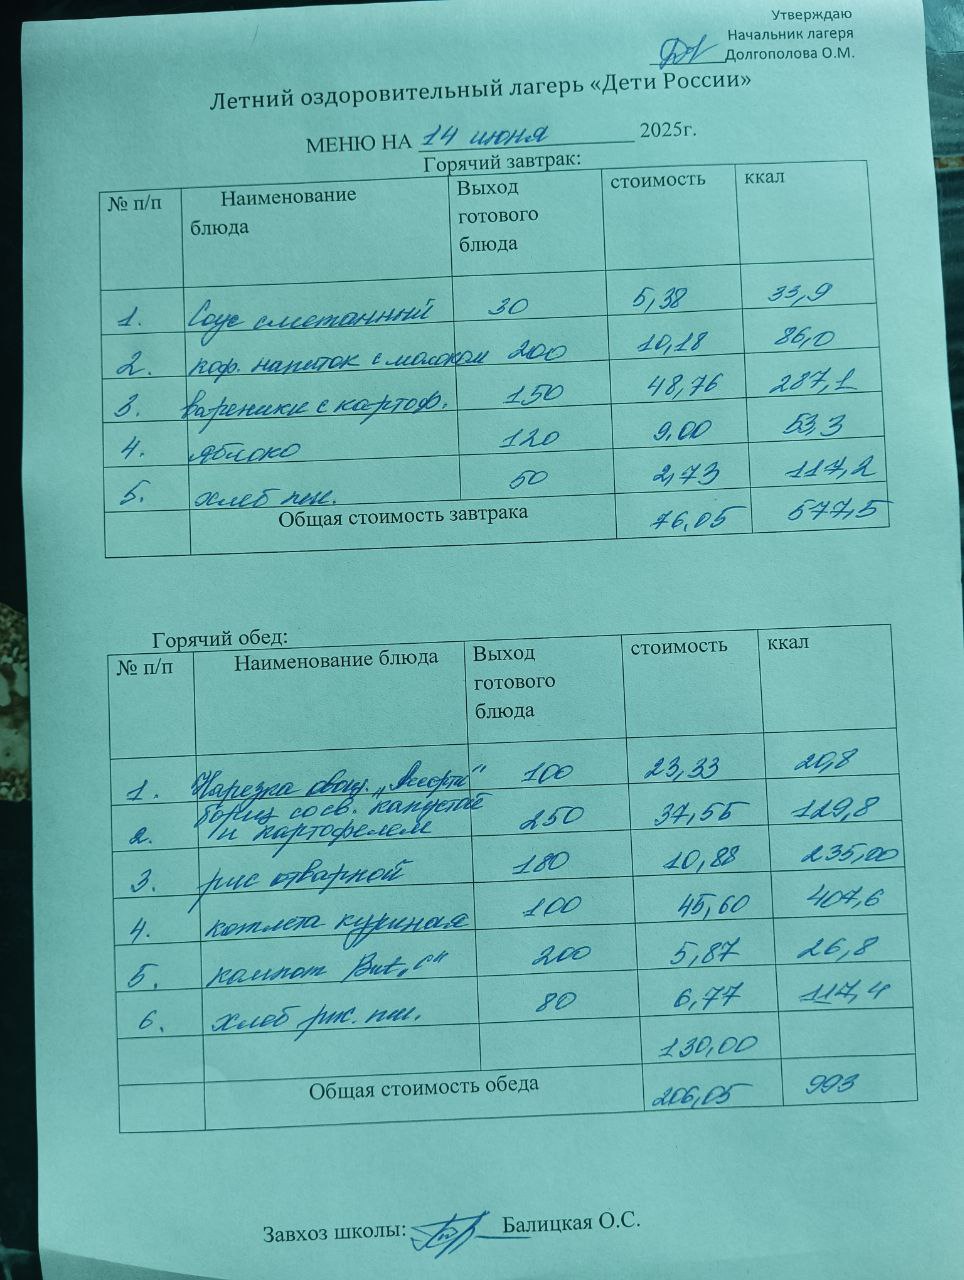 Утверждаю
Начальник лагеря
Долгополова О.М.
Летний оздоровительный лагерь «Дети России»
МЕНЮ НА 14 июня 2025г.
Горячий завтрак:
№ п/п Наименование блюда Выход готового блюда стоимость ккал
1. Соус сметанный 30 5,38 33,9
2. коф. напиток с молоком 200 10,18 86,0
3. вареники с картоф. 150 48,76 287,1
4. яблоко 120 9.00 53,3
5. хлеб пш. 50 2,73 117,2
Общая стоимость завтрака 76,05 577,5
Горячий обед:
№ п/п Наименование блюда Выход готового блюда стоимость ккал
1. Нарезка овощ. „Ассорти“ 100 23,33 20,8
2. борщ со св. капустой и картофелем 250 37,55 129,8
3. рис отварной 180 10,88 235,00
4. котлета куриная 100 45,60 407,6
5. компот Вит„С“ 200 5,87 26,8
6. хлеб рж. пш. 80 6,77 117,4
130,00
Общая стоимость обеда 206,05 993
Завхоз школы: Балицкая О.С.